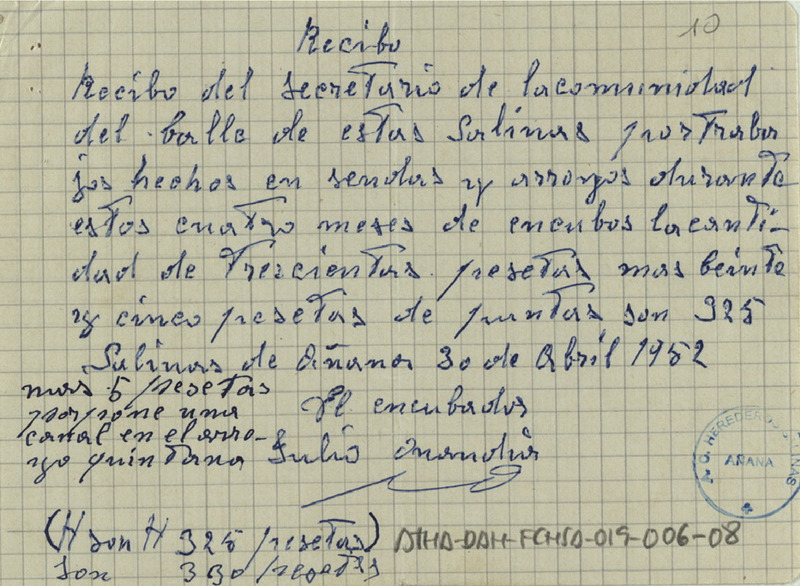 10
Recibo
Recibo del secretario de lacomunidad
del balle de estas Salinas portraba
jos hechos en sendas y arroyos durante
estos cuatro meses de encubos lacanti-
dad de Trescientas pesetas mas beinte
y cinco pesetas de puntas son 325
Salinas de Añana 30 de Abril 1952
mas 5 pesetas
porpone una
canal en el arro-
yo quintana
El encubador
Julio
(H son H 325 pesetas)
son 330 pesetas
ATHA-DAH-FCHSA-019-006-08
HEREDEROS
AÑANA